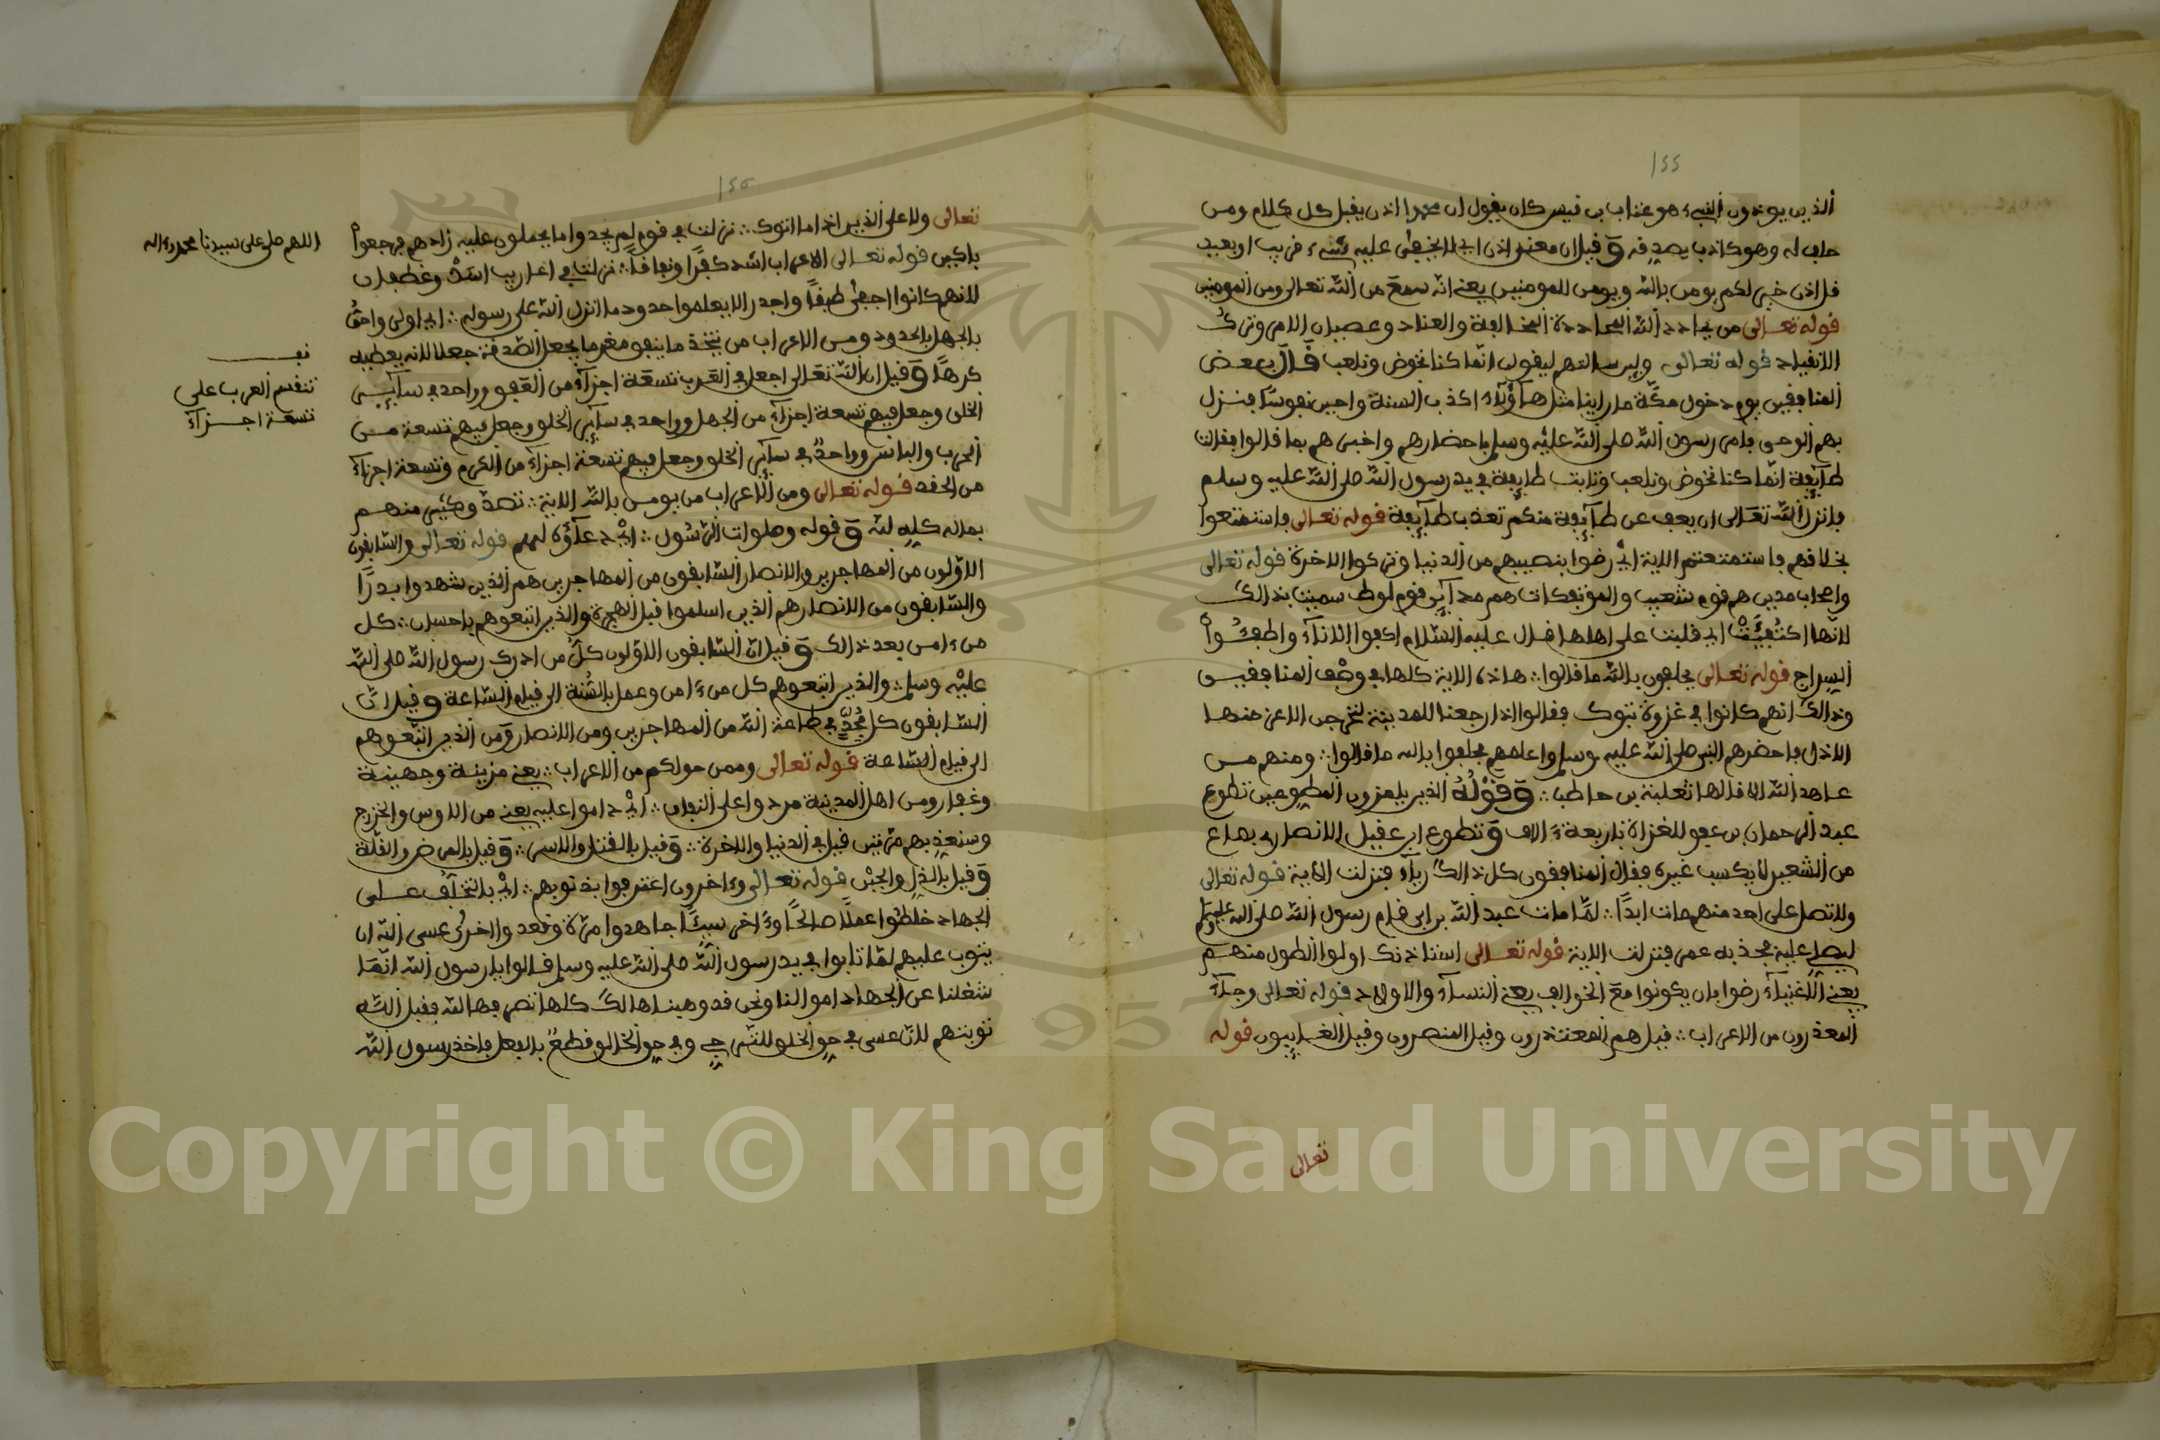 ١٢٢
الذين يوذون النبيء هو عتاب بن قيس كان يقول ان محمدا اذن يقبل كل كلام ومن
حلب له وهو كاذب يصدفه وقيل ان معنى اذن اي لا يخفى عليه شيء قريب او بعيد
قل اذن خير لكم يومن بالله ويومن للمومنين يعني انه سمع من الله تعالى ومن المومنين
قوله تعالى من يحادد الله المحاددة المخالفة والعناد وعصيان الامر وترك
الانقياد قوله تعالى ولين سالتهم ليقولن انما كنا نخوض ونلعب قال بعض
المنافقين يوم دخول مكة ما راينا مثل هاؤلاء اكذب السنة واجبن نفوسا فنزل
بهم الوحى فامر رسول الله صلى الله عليه وسلم باحضارهم واخبرهم بما قالوا فقالت
طآيفة انما كنا نخوض ونلعب وتابت طايفة في يد رسول الله صلى الله عليه وسلم
فانزل الله تعالى ان يعف عن طآيفة منكم تعذب طآيفة قوله تعالى فاستمتعوا
بخلافهم فاستمتعتم الاية اي رضوا بنصيبهم من الدنيا وتركوا الاخرة قوله تعالى
واصحاب مدين هم قوم شعيب والموتفكات هم مدآين قوم لوط سميت بذالك
لانها اي قلبت على اهلها قال عليه السلام اكفوا الانآء واطفـئوا
السراج قوله تعالى يحلفون بالله ما قالوا هاذه الاية كلها في وصف المنافقين
وذالك انهم كانوا في غزوة تبوك فقالوا اذا رجعنا للمدينة لنخرجن الاعز منها
الاذل فاحضرهم النبي صلى الله عليه وسلم واعلمهم فحلفوا بالله ما قالوا ومنهم من
عاهد الله الاية قالها ثعلبة بن حاطب وقوله الذين يلمزون المطوعين تطوع
عبد الرحمان بن عوف للغزاة باربعة ءالاف وتطوع ابى عقيل الانصارى بصاع
من الشعير لا يكسب غيره فقال المنافقون كل ذالك ريآء فنزلت الاية قوله تعالى
ولا تصل على احد منهم مات ابدا لما مات عبد الله بن ابى قام رسول الله صلى الله عليه وسلم
ليصلى عليه فجذبه عمر فنزلت الاية قوله تعالى استاذنك اولوا الطول منهم
يعني الاغنيآء رضوا بان يكونوا مع الخوالف يعني النسآء والاولاد قوله تعالى وجآء
المعذرون من الاعراب قيل هم المعتذرون وقيل المقصرون وقيل الغايبون قوله
تعالى
تعالى ولا على الذين اذا ما اتوك نزلت في قوم لم يجدوا ما يحملون عليه زادهم فرجعوا
باكين قوله تعالى الاعراب اشد كفرا ونفاقا نزلت في اعاريب اسد وغطفان
لانهم كانوا اجفى طبعا واجدر الا يعلموا حدود ما انزل الله على رسوله اي اولى واحق
بالجهل بالحدود ومن الاعراب من يتخذ ما ينفق مغرما يجعل الصدقة جعلا لانه يعطيه
كرها وقيل ان الله تعالى اجعل في العرب تسعة اجزآء من العقو وواحد في سآيـر
الخلق وجعل فيهم تسعة اجزآء من الجهل وواحد في سآير الخلق وجعل فيهم تسعة من
الحرب والباس وواحد في سآير الخلق وجعل فيهم تسعة اجزآء من الكرم وتسعة اجزآء
من الحقد قوله تعالى ومن الاعراب من يومن بالله الاية تصدق وكثير منهم
بماله كله لله وقوله وصلوات الرسول اي دعآؤه لهم قوله تعالى والسابقون
الاولون من المهاجرين والانصار السابقون من المهاجرين هم الذين شهدوا بدرا
والسابقون من الانصار هم الذين اسلموا قبل الهجرة والذين اتبعوهم باحسان كل
من ءامن بعد ذالك وقيل ان السابقون الاولون كل من ادرك رسول الله صلى الله
عليه وسلم والذين اتبعوهم كل من ءامن وعمل بالسنة الى قيام الساعة وقيل ان
السابقون كل مجد في طاعة الله من المهاجرين ومن الانصار ومن الذين اتبعوهم
الى قيام الساعة قوله تعالى وممن حولكم من الاعراب يعني مزينة وجهينة
وغفار ومن اهل المدينة مردوا على النفاق اي داموا عليه يعني من الاوس والخزرج
وسنعذبهم مرتين قيل في الدنيا والاخرة وقيل بالقتل والاسر وقيل بالمرض والقلة
وقيل بالذل والجبن قوله تعالى وءاخرون اعترفوا بذنوبهم اي بالتخلف على
الجهاد خلطوا عملا صالحا وءاخر سيئا جاهدوا مرة وقعد والاخرى عسى الله ان
يتوب عليهم لما تابوا في يد رسول الله صلى الله عليه وسلم قالوا يا رسول الله انما
شغلنا عن الجهاد اموالنا ونحن قد وهبناها لك كلها تصرفها لله فقبل الله
توبتهم لان عسى في حق الخلق للترجي وفي حق الخالق قطع بالفعل فاخذ رسول الله
اللهم صل على سيدنا محمد وءاله
نفـ
تنقسم العرب على
تسعة اجزآء
Copyright © King Saud University
1957